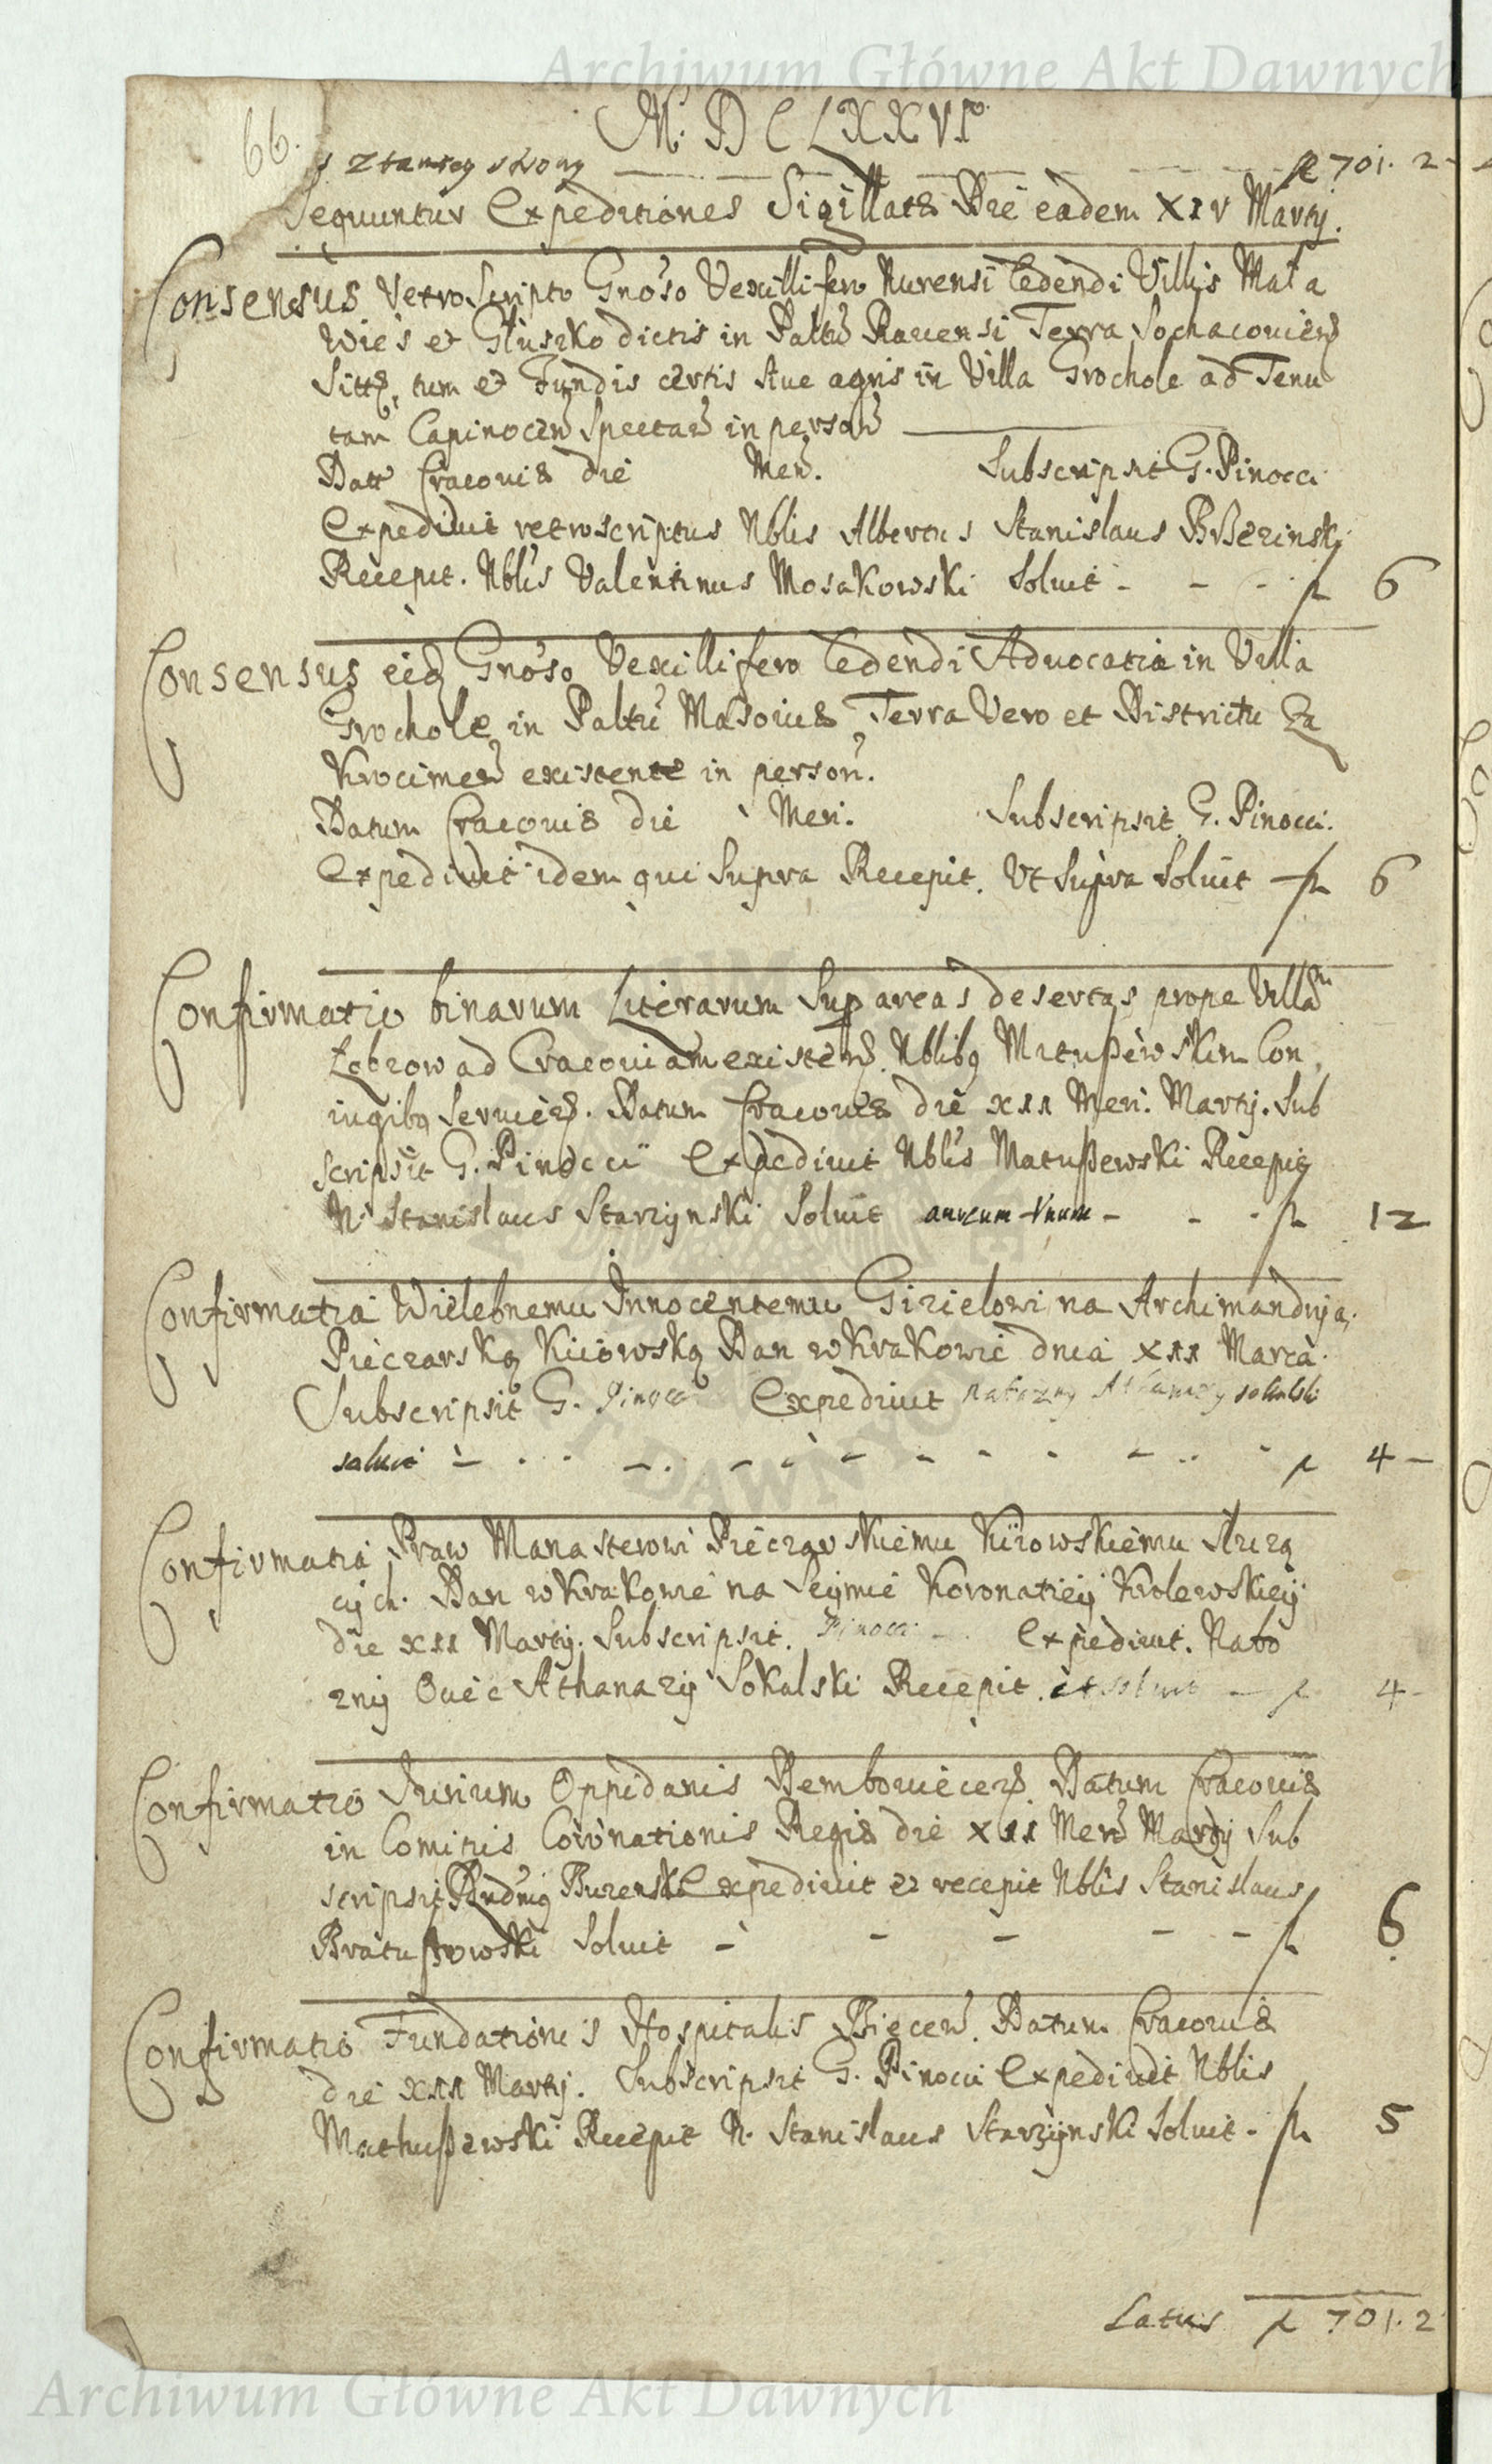 Archiwum Główne Akt Dawnych
66.
M. D C LXXVI
z tamtey strony — — — — fl 701. 2
Sequuntur Expeditiones Sigillatae Die eadem XIV Martij.
Consensus Retro Scripto Gnoso Vexillifero Nurensi Cedendi Villis Mała
Wies et Głuszko dictis in Paltu Ravensi Terra Sochaconien
Sittis, tum et Fundis certis sive agris in Villa Grochole ad Tenu
tam Capinocen Spectan in person
Datt Cracoviae die Men. Subscripsit G. Pinocci
Expedivit retroscriptus Nblis Albertus Stanislaus
Recepit. Nblis Valentinus Mosakowski Solvit - - - fl 6
Consensus eidem Gnoso Vexillifero Cedendi Advocatia in Villa
Grochole in Paltu Masoviae, Terra Vero et Districtu Za
krocimen existente in person.
Datum Cracoviae die Men. Subscripsit G. Pinocci.
Expedivit idem qui Supra Recepit. Ut Supra Solvit fl 6
Confirmatio binarum Literarum Sup areas desertas prope Villam
Łobzow ad Cracoviam existen. Nblibq Matuszewskim Con
iugibq Servien. Datum Cracoviae die XII Men. Martij. Sub
scripsit G. Pinocci Expedivit Nblis Matuszewski Recepit
N. Stanislaus Starzynski Solvit aureum Unum - - - fl 12
Confirmatia Wielebnemu Innocentemu Gizielowi na Archimandryą
Pieczarską Kiiowską Dan w Krakowie dnia XII Marca.
Subscripsit G. Pinocci Expedivit nabozny Athanazy sokalski
soluit - - - - - - - - - - fl 4 -
Confirmatia Praw Manasterowi Pieczarskiemu Kiiowskiemu Służą
cych. Dan w Krakowie na Seymie Koronatiey Krolewskiey
die XII Martij. Subscripsit. Pinocci - Expedivit. Nabo
zny Oiciec Athanazy Sokalski Recepit. et soluit - fl 4 -
Confirmatio Iurium Oppidanis Dembowiecen. Datum Cracoviae
in Comitiis Coronationis Regiae die XII Men Martij Sub
scripsit Expedivit et recepit Nblis Stanislaus
Bratuszowski Solvit - - - - - fl 6
Confirmatio Fundationis Hospitalis Biecen. Datum Cracoviae
die XII Martij. Subscripsit G. Pinocci Expedivit Nblis
Mathuszewski Recepit N. Stanislaus Starzynski Solvit - fl 5
Latus fl 701. 2
Archiwum Główne Akt Dawnych